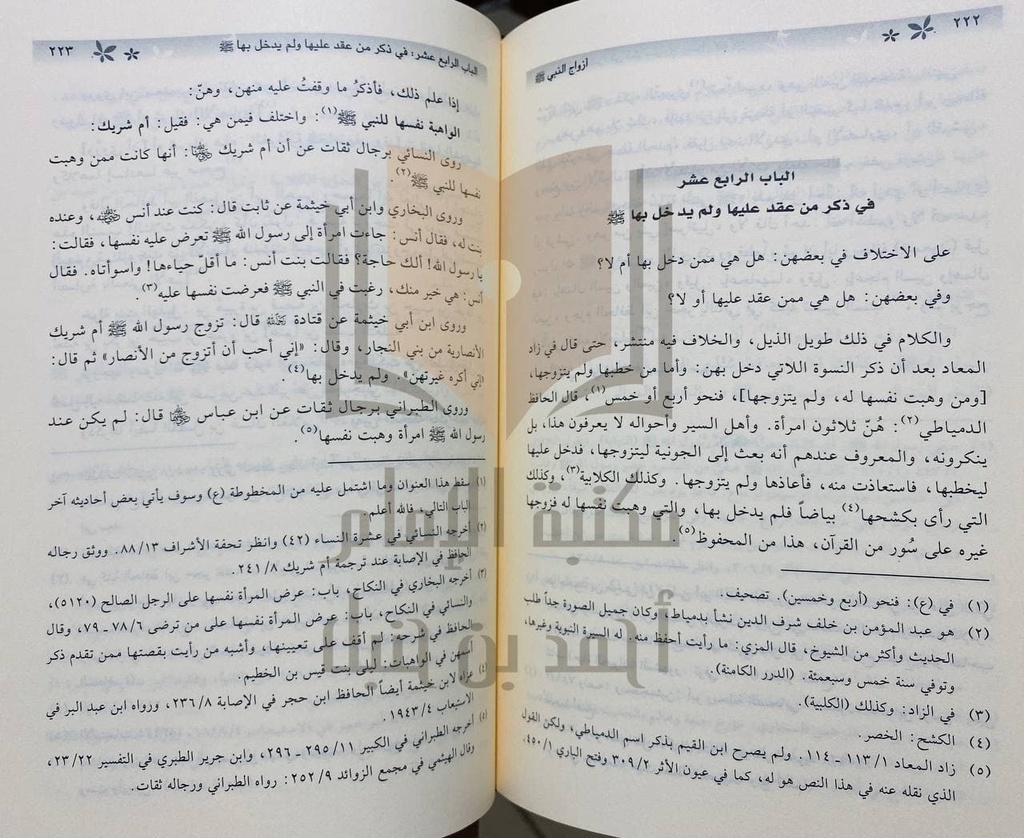 ٢٢٢
أزواج النبي ﷺ
الباب الرابع عشر
في ذكر من عقد عليها ولم يدخل بها ﷺ
على الاختلاف في بعضهن: هل هي ممن دخل بها أم لا؟
وفي بعضهن: هل هي ممن عقد عليها أو لا؟
والكلام في ذلك طويل الذيل، والخلاف فيه منتشر، حتى قال في زاد
المعاد بعد أن ذكر النسوة اللاتي دخل بهن: وأما من خطبها ولم يتزوجها،
[ومن وهبت نفسها له، ولم يتزوجها]، فنحو أربع أو خمس(١)، قال الحافظ
الدمياطي(٢): هُنّ ثلاثون امرأة. وأهل السير وأحواله لا يعرفون هذا، بل
ينكرونه، والمعروف عندهم أنه بعث إلى الجونية ليتزوجها، فدخل عليها
ليخطبها، فاستعاذت منه، فأعاذها ولم يتزوجها. وكذلك الكلابية(٣)، وكذلك
التي رأى بكشحها(٤) بياضاً فلم يدخل بها، والتي وهبت نفسها له فزوجها
غيره على سُور من القرآن، هذا من المحفوظ(٥)
(١) في (ع): فنحو (أربع وخمسين). تصحيف.
(٢) هو عبد المؤمن بن خلف شرف الدين نشأ بدمياط، وكان جميل الصورة جداً طلب
الحديث وأكثر من الشيوخ، قال المزي: ما رأيت أحفظ منه. له السيرة النبوية وغيرها،
وتوفي سنة خمس وسبعمئة. (الدرر الكامنة).
(٣) في الزاد: وكذلك (الكلبية).
(٤) الكشح: الخصر.
(٥) زاد المعاد ١/ ١١٣ - ١١٤. ولم يصرح ابن القيم بذكر اسم الدمياطي، ولكن القول
الذي نقله عنه في هذا النص هو له، كما في عيون الأثر ٢/ ٣٠٩ وفتح الباري ١/ ٤٥٠.
الباب الرابع عشر: في ذكر من عقد عليها ولم يدخل بها ﷺ
٢٢٣
إذا علم ذلك، فأذكرُ ما وقفتُ عليه منهن، وهنّ:
الواهبة نفسها للنبي ﷺ(١): واختلف فيمن هي: فقيل: أم شريك:
روى النسائي برجال ثقات عن أن أم شريك رضي الله عنها: أنها كانت ممن وهبت
نفسها للنبي ﷺ(٢).
وروى البخاري وابن أبي خيثمة عن ثابت قال: كنت عند أنس رضي الله عنه، وعنده
بنت له، فقال أنس: جاءت امرأة إلى رسول الله ﷺ تعرض عليه نفسها، فقالت:
يا رسول الله! ألك حاجة؟ فقالت بنت أنس: ما أقلّ حياءها! واسوأتاه. فقال
أنس: هي خير منك، رغبت في النبي ﷺ فعرضت نفسها عليه(٣).
وروى ابن أبي خيثمة عن قتادة رضي الله عنه قال: تزوج رسول الله ﷺ أم شريك
الأنصارية من بني النجار، وقال: «إني أحب أن أتزوج من الأنصار» ثم قال:
«إني أكره غيرتهن». ولم يدخل بها(٤).
وروى الطبراني برجال ثقات عن ابن عباس رضي الله عنه قال: لم يكن عند
رسول الله ﷺ امرأة وهبت نفسها(٥).
(١) سقط هذا العنوان وما اشتمل عليه من المخطوطة (ع) وسوف يأتي بعض أحاديثه آخر
الباب التالي، فالله أعلم.
(٢) أخرجه النسائي في عشرة النساء (٤٢) وانظر تحفة الأشراف ١٣/ ٨٨. ووثق رجاله
الحافظ في الإصابة عند ترجمة أم شريك ٨/ ٢٤١.
(٣) أخرجه البخاري في النكاح، باب: عرض المرأة نفسها على الرجل الصالح (٥١٢٠)،
والنسائي في النكاح، باب: عرض المرأة نفسها على من ترضى ٦/ ٧٨ - ٧٩، وقال
الحافظ في شرحه: لم أقف على تعيينها، وأشبه من رأيت بقصتها ممن تقدم ذكر
أسمهن في الواهبات: ليلى بنت قيس بن الخطيم.
(٤) عزاه لابن خيثمة أيضاً الحافظ ابن حجر في الإصابة ٨/ ٢٣٦، ورواه ابن عبد البر في
الاستيعاب ٤/ ١٩٤٣.
(٥) أخرجه الطبراني في الكبير ١١/ ٢٩٥ - ٢٩٦، وابن جرير الطبري في التفسير ٢٢/ ٢٣،
وقال الهيثمي في مجمع الزوائد ٩/ ٢٥٢: رواه الطبراني ورجاله ثقات.
مكتبة الإمام
أحمد بن حنبل